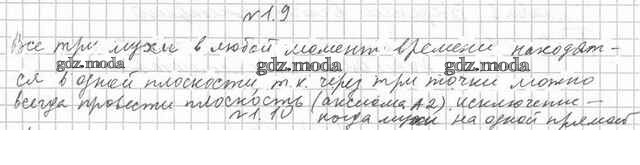 №1.9
Все три мухи в любой момент времени находят-
ся в одной плоскости, т.к. через три точки можно
gdz.moda gdz.moda gdz.moda
всегда провести плоскость (аксиома А2). исключение –
№1.10 когда мухи на одной прямой
gdz.moda gdz.moda gdz.moda